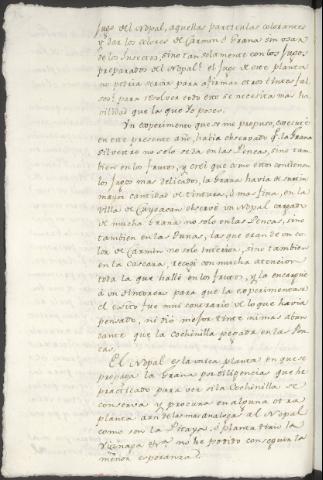 jugo del Nopal, aquellas particulas colorantes
y dar los colores de Carmin ò Grana sin usar
de los Insectos, sino tan solamente con los Jugos
preparados del Nopal? el Jugo de este planta
no podia servir para afianzar otros tintes fal
sos? para resolver todo esto se necesita mas ha
vilidad que la que Yo poseo.
Un experimento que se me propuso, execute
en este presente año, havia observado q.e la Grana
silvestre no solo se da en las Pencas, sino tam
bien en los frutos, y crei que como estos contienen
los Jugos mas delicados, la Grana havia de
mayor cantidad de tintura, ò mas fina, en la
Villa de Cuyoacan observé un Nopal cargado
de mucha Grana no solo en las Pencas, sino
tambien en las Tunas, las que eran de un co
lor de Carmin no solo interior, sino tambien
en la Cascara, recogi con mucha atencion
toda la que hallé en los frutos, y la encargue
à un tintorero para que la experimentase
el exito fue mui contrario de lo que havia
pensado, ni dió mejor tinte ni mas abun
dante que la Cochinilla pegada en las Pen
cas.
El Nopal es la unica planta en que se
propaga la Grana por diligencias que he
practicado para ver si la Cochinilla se
conserva y procrea en alguna otra
planta aun de las mas analogas al Nopal
como son la Pitaya, ò planta
no he podido conseguir la
menor esperanza?